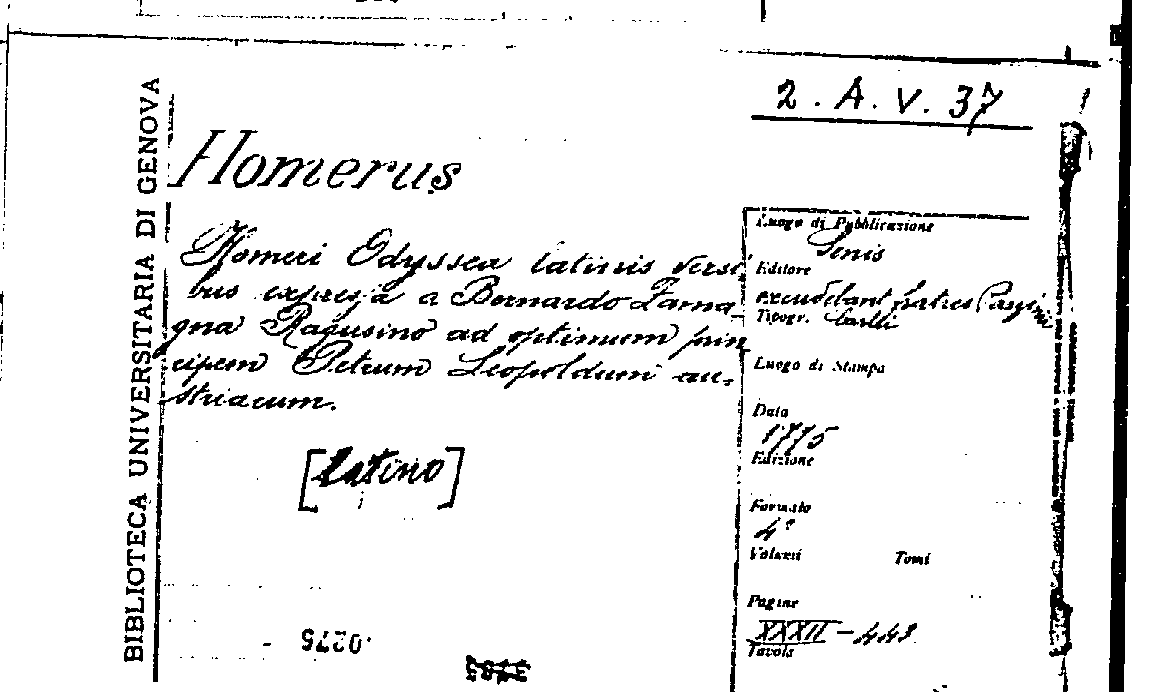 2. A. V. 37
BIBLIOTECA UNIVERSITARIA DI GENOVA
Homerus
Homeri Odyssea latinis versi
bus expressa a Bernardo Zama-
gna Ragusino ad optimum prin
cipem Petrum Leopoldum au-
striacum.
[latino]
Luogo di Pubblicazione
Senis
Editore
excudebant fratres Pazzini
Tipogr. Carlli
Luogo di Stampa
Data
1775
Edizione
Formato
4°
Volumi Tomi
Pagine
XXXII - 443
Tavole
0275